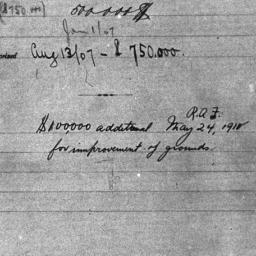 ($750.000)
500.000
Jan 1/07
Aug 13/07 - $750.000.
R.A.F.
$100,000 additional May 24, 1910
for improvement of grounds